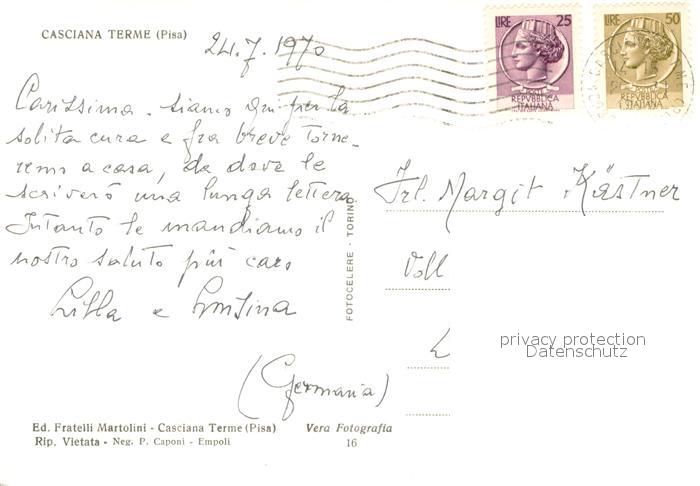 CASCIANA TERME (Pisa)
24.7.1970
LIRE 25
REPVBBLICA
ITALIANA
LIRE 50
REPVBBLICA
ITALIANA
Carissima. siamo qui per la
solita cura e fra breve torne-
remo a casa, da dove le
scriverò una lunga lettera
Intanto le mandiamo il
nostro saluto più caro
Lilla e
Frl. Margit Kästner
Voll
L
(Germania)
FOTOCELERE - TORINO
privacy protection
Datenschutz
Ed. Fratelli Martolini - Casciana Terme (Pisa) Vera Fotografia
Rip. Vietata - Neg. P. Caponi - Empoli 16